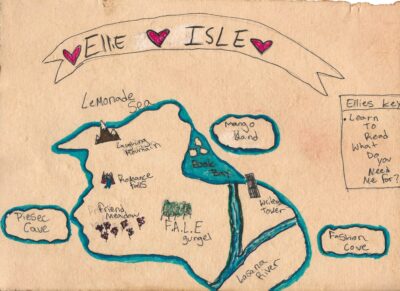 Elle ISLE
Lemonade
Sea
Ellies Key
• Learn
To
Read
What
Do
you
Need
Me For?
Mango
Island
Laughing
Mountain
Book
Bay
Romance
Falls
Writers
Tower
Friend
Meadow
F.A.L.E
Jungel
Cave
Fashion
Cove
Lasana
River